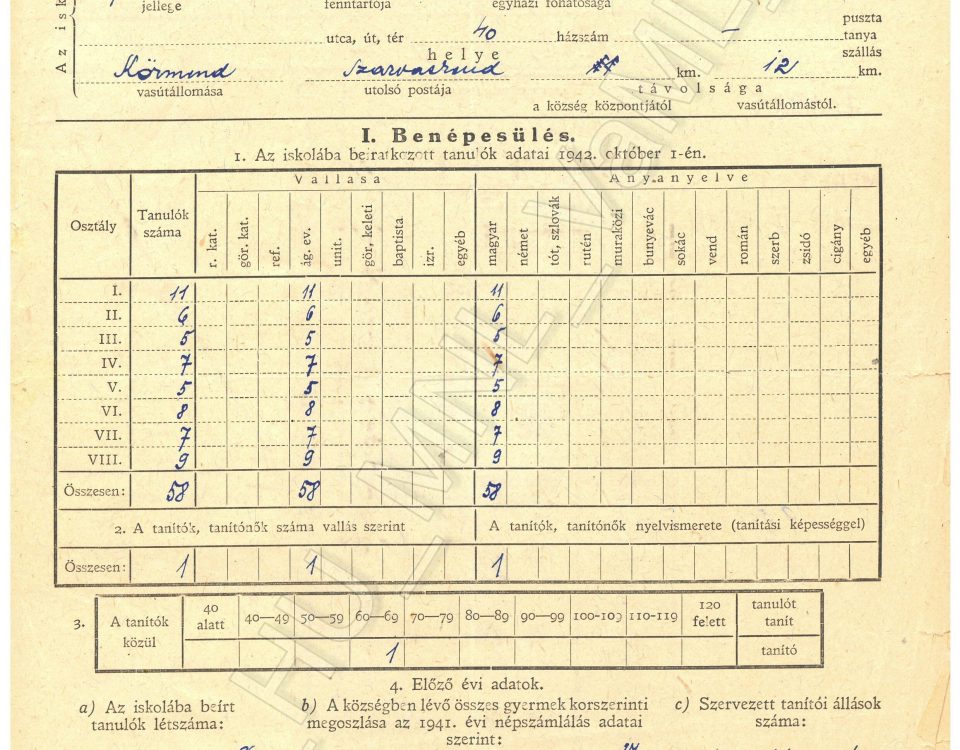 jellege fenntartója egyházi főhatósága
Az isk
utca, út, tér 40 házszám — puszta tanya szállás
helye
Körmend Szarvaskend km. 12 km.
vasútállomása utolsó postája távolsága
a község központjától vasútállomástól.
I. Benépesülés.
1. Az iskolába beiratkozott tanulók adatai 1942. október 1-én.
Osztály Tanulók száma Vallása Anyanyelve
r. kat. gör. kat. ref. ág. ev. unit. gör. keleti baptista izr. egyéb magyar német tót, szlovák rutén muraközi bunyevác sokác vend román szerb zsidó cigány egyéb
I. 11 11 11
II. 6 6 6
III. 5 5 5
IV. 7 7 7
V. 5 5 5
VI. 8 8 8
VII. 7 7 7
VIII. 9 9 9
Összesen: 58 58 58
2. A tanítók, tanítónők száma vallás szerint A tanítók, tanítónők nyelvismerete (tanítási képességgel)
Összesen: 1 1 1
3. A tanítók közül 40 alatt 40—49 50—59 60—69 70—79 80—89 90—99 100-109 110-119 120 felett tanulót tanít
1 tanító
4. Előző évi adatok.
a) Az iskolába beírt b) A községben lévő összes gyermek korszerinti c) Szervezett tanítói állások
tanulók létszáma: megoszlása az 1941. évi népszámlálás adatai száma:
szerint:
HU_MNL_VaML